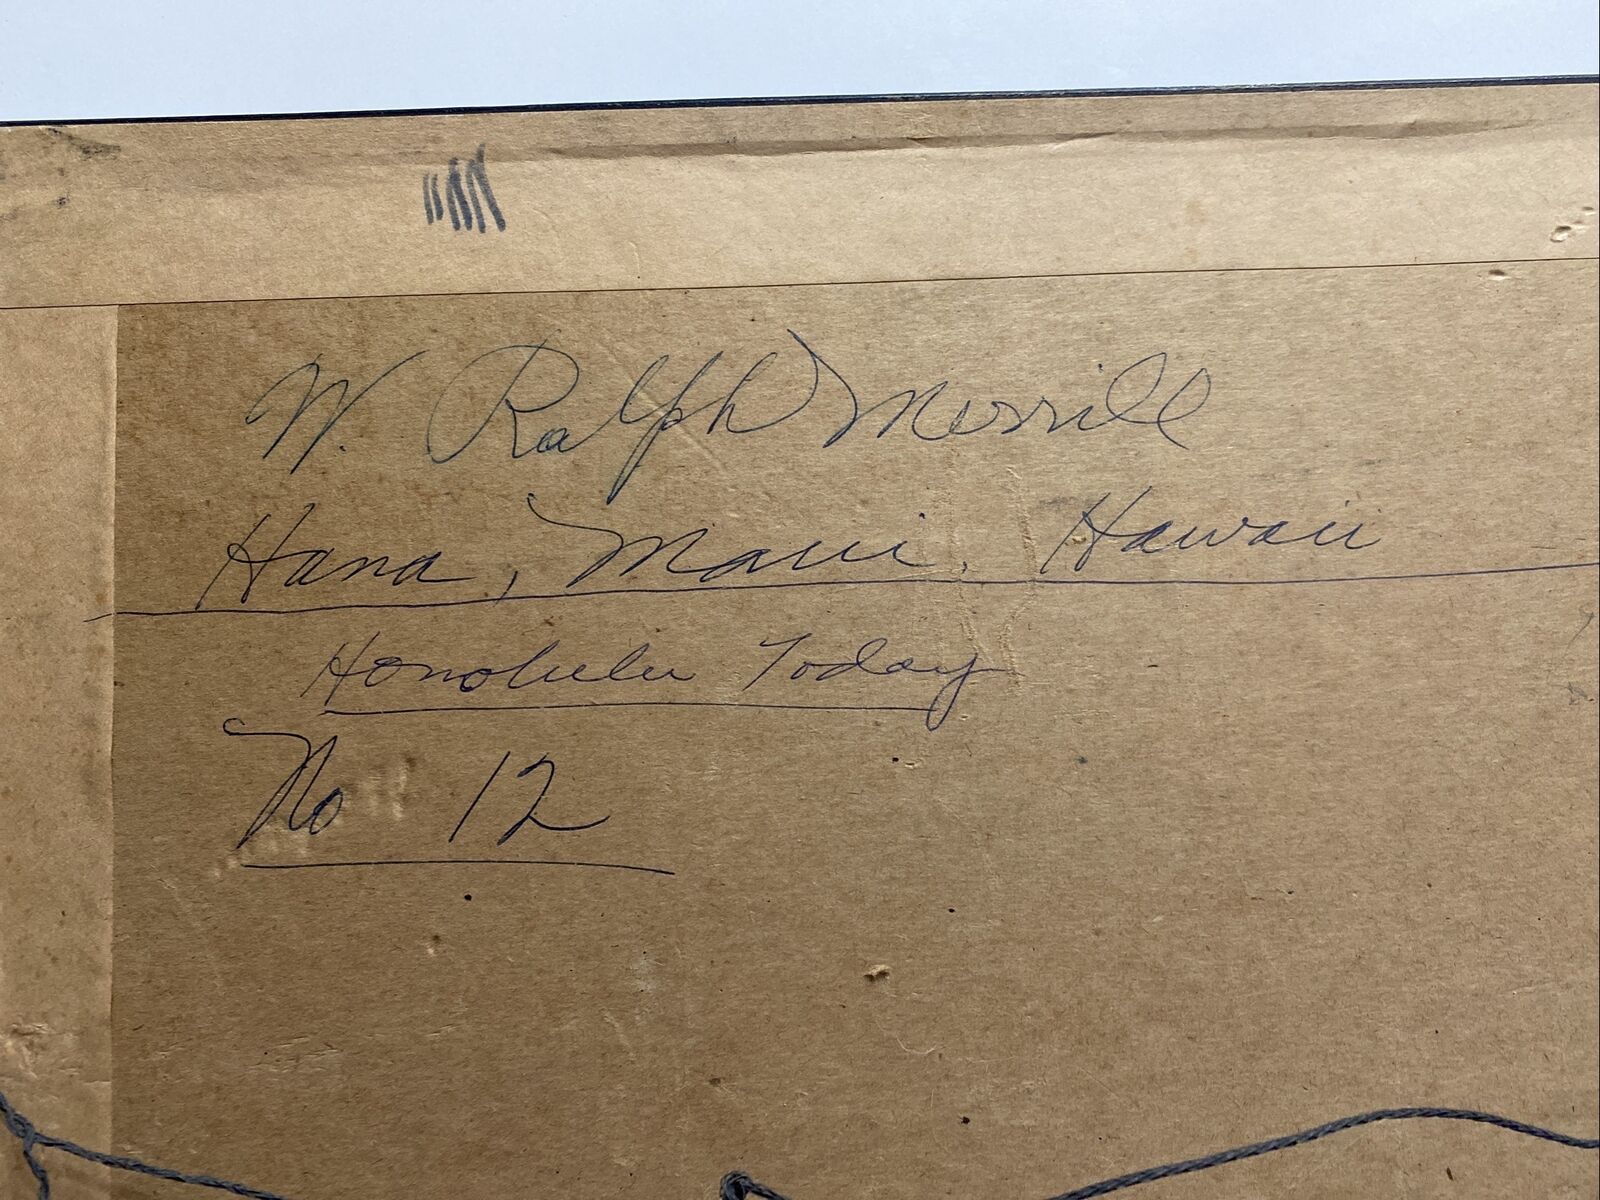 W. Ralph Merrill
Hana, Maui, Hawaii
Honolulu Today
No 12